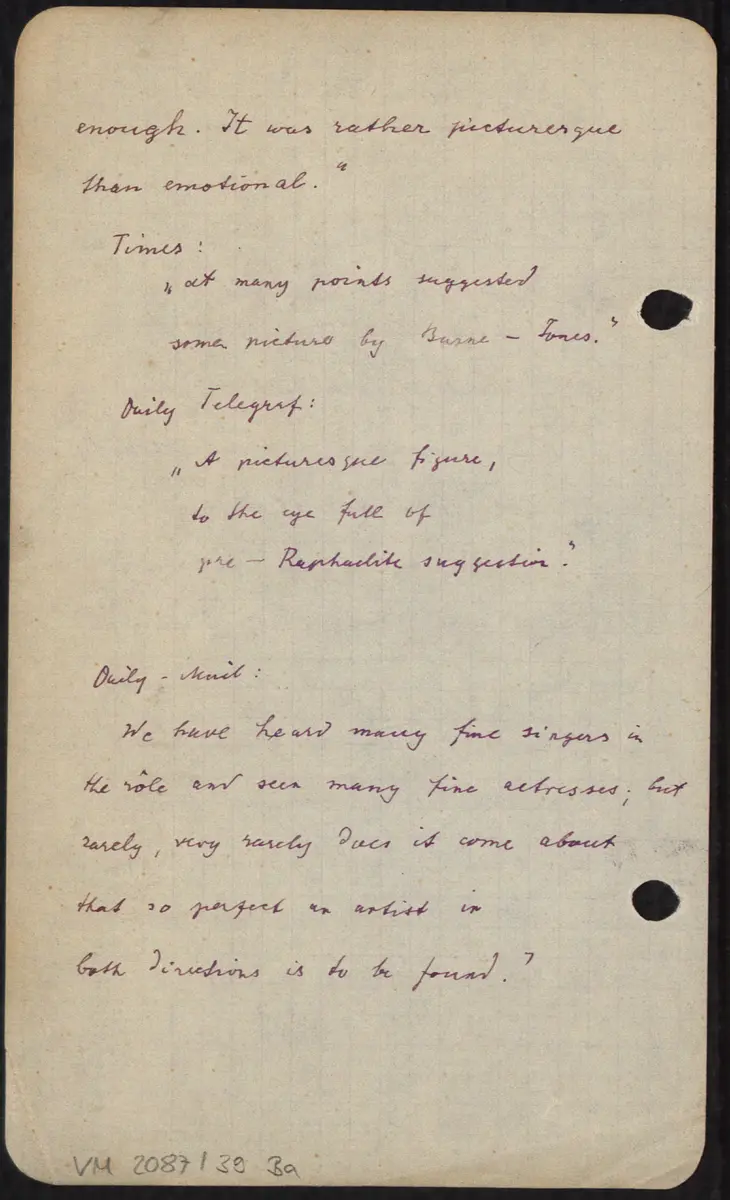 enough. It was rather picturesque
than emotional."
Times:
„at many points suggested
some picture by Burne - Jones."
Daily Telegraf:
„A picturesque figure,
to the eye full of
pre - Raphaelite suggestion."
Daily - Mail:
We have heard many fine singers in
the rôle and seen many fine actresses; but
rarely, very rarely does it come about
that so perfect an artist in
both directions is to be found."
VM 2087/39 Ba